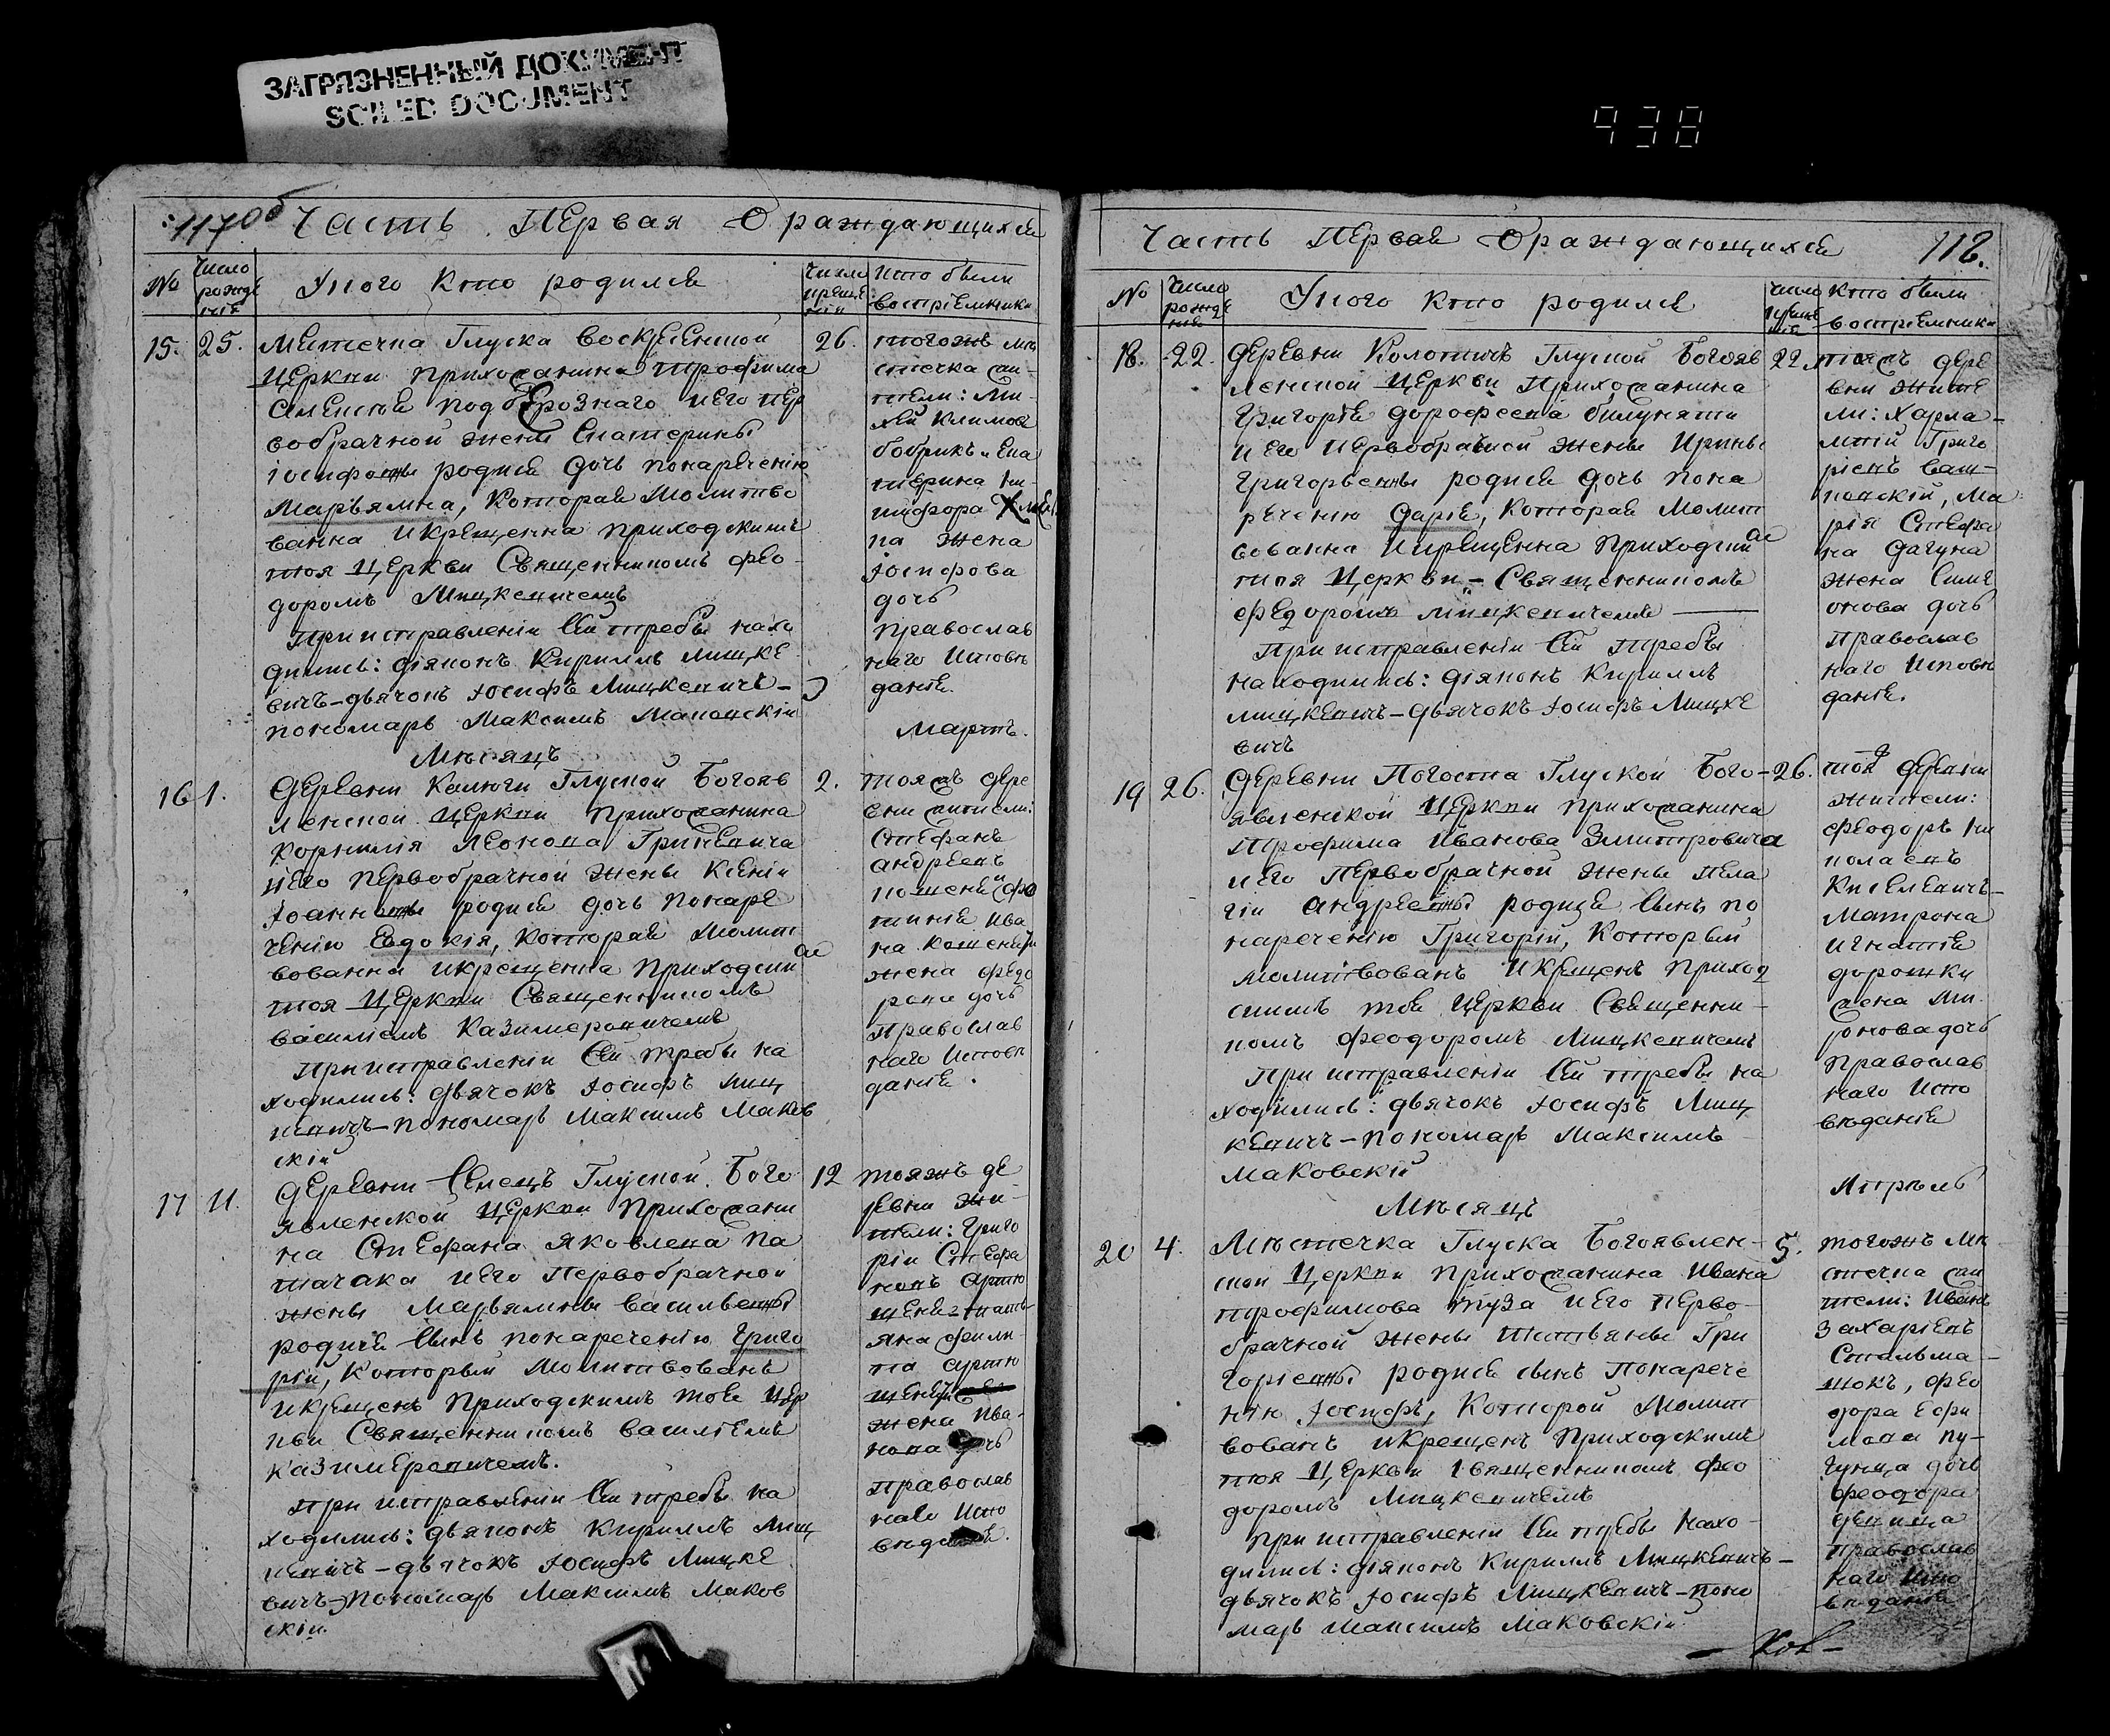 ЗАГРЯЗНЕННЫЙ ДОКУМЕНТ
SOILED DOCUMENT
938
117 об
Часть Первая О раждающихся
№
Число рожденія
У кого кто родился
Число крещенія
Кто были воспріемники
15.
25.
Местечка Глуска Воскресенской
Церкви прихожанина Трофима
Семенова Подберознаго и его пер
вобрачной жены Екатерины
Іосифовны родися дочь понареченію
Марьямна, Которая Молитво
ванна и крещенна приходскимъ
тоя Церкви Священникомъ Фео
доромъ Мицкевичемъ
При исправленіи сей требы нахо
дились: діяконъ Кириллъ Мицке
вичъ-дьячокъ Іосифъ Мицкевичъ-
пономарь Максимъ Маковскій
26.
тогожъ мѣ
стечка жи
тели: Ми-
хей Климовъ
Бобрикъ и Ека
терина Ни-
кифора
на жена
Іосифова
дочь
Православ
наго Исповѣ
данія.
Мѣсяцъ
Мартъ.
16
1.
Деревни Калюги Глуской Богояв
ленской Церкви Прихожанина
Корнилія Леонова Гриневича
и его Первобрачной жены Ксеніи
Іоанновны родися дочь Понаре
ченію Евдокія, Которая Молит
вованна и крещенна Приходски
тоя Церкви Священникомъ
Василіемъ Казимеровичемъ
При исправленіи Сей требы на
ходились: дьячокъ Іосифъ Миц
кевичъ-пономарь Максимъ Маков
скій
2.
тояжъ дере
вни жители:
Стефанъ
Андреевъ
тинія Ива
на
жена Федо
рова дочь
Православ
наго Исповѣ
данія.
17
11.
Деревни Сенецъ Глуской Бого
явленской Церкви Прихожани
на Стефана Яковлева Па
тачака и его Первобрачной
жены Марьямны Васильевны
родися сынъ понареченію Григо
рій, Который Молитвованъ
и крещенъ Приходскимъ тоя Цер
кви Священникомъ Василіемъ
Казимеровичемъ.
При исправленіи Сей требы на
ходились: дьяконъ Кириллъ Миц
кевичъ-дьячокъ Іосифъ Мицке
вичъ-Пономарь Максимъ Маков
скій.
12
тояжъ де
ревни жи-
тели: Григо
рій Стефа
новъ Артю
шеня-Тать
яна Фили-
па Артю
шени
жена Ива-
нова дочь
Православ
наго Испо
вѣданія.
Часть Первая О раждающихся
118.
№
Число рожденія
У кого кто родился
Число крещенія
Кто были воспріемники
18.
22.
Деревни Колотичъ Глуской Богояв
ленской Церкви Прихожанина
Григорія Дорофеева Билукяти
и его Первобрачной жены Ирины
Григорьевны родися дочь пона
реченію Дарія, Которая Молит
вованна и крещенна приходски
тоя Церкви - Священникомъ
Федоромъ Мицкевичемъ
При исправленіи Сей Требы
находились: діяконъ Кириллъ
Мицкевичъ-дьячокъ Іосифъ Мицке
вичъ
22.
тояжъ дере
вни жите
ли: Харла-
мпій Григо
ріевъ
Ма
рія Стефа
на
жена Симе
онова дочь
Православ
наго Исповѣ
данія.
19
26.
Деревни Погоста Глуской Бого-
явленской Церкви прихожанина
Трофима Иванова Змитровича
и его Первобрачной жены Пела
гіи Андреевны родися сынъ по
нареченію Григорій, Который
молитвованъ и крещенъ приход
скимъ тоя Церкви Священни-
комъ Феодоромъ Мицкевичемъ
При исправленіи Сей требы на
ходились: дьячокъ Іосифъ Миц
кевичъ-пономарь Максимъ
Маковскій
26.
той деревни
жители:
Феодоръ Ни
колаевъ
Киселевичъ-
Матрона
Игнатія
Дорошки
жена Ми
ронова дочь
Православ
наго Испо
вѣданія
Мѣсяцъ
Апрѣль
20
4.
Мѣстечка Глуска Богоявлен-
ской Церкви Прихожанина Ивана
Трофимова Туза и его Перво-
брачной жены Татьяны Гри
горіевны родися сынъ Понарече
нію Іосифъ, Которой Молит
вованъ и крещенъ Приходскимъ
тоя Церкви священникомъ Фео
доромъ Мицкевичемъ
При исправленіи Сей требы Нахо-
дились: діяконъ Кириллъ Мицкевичъ-
дьячокъ Іосифъ Мицкевичъ-поно
марь Максимъ Маковскій
5.
тогожъ мѣ
стечка жи
тели: Иванъ
Захаріевъ
Стальма-
шокъ, Фео
дора Ефи
мова
дочь
Феодора
девица
Православ
наго Испо
вѣданія